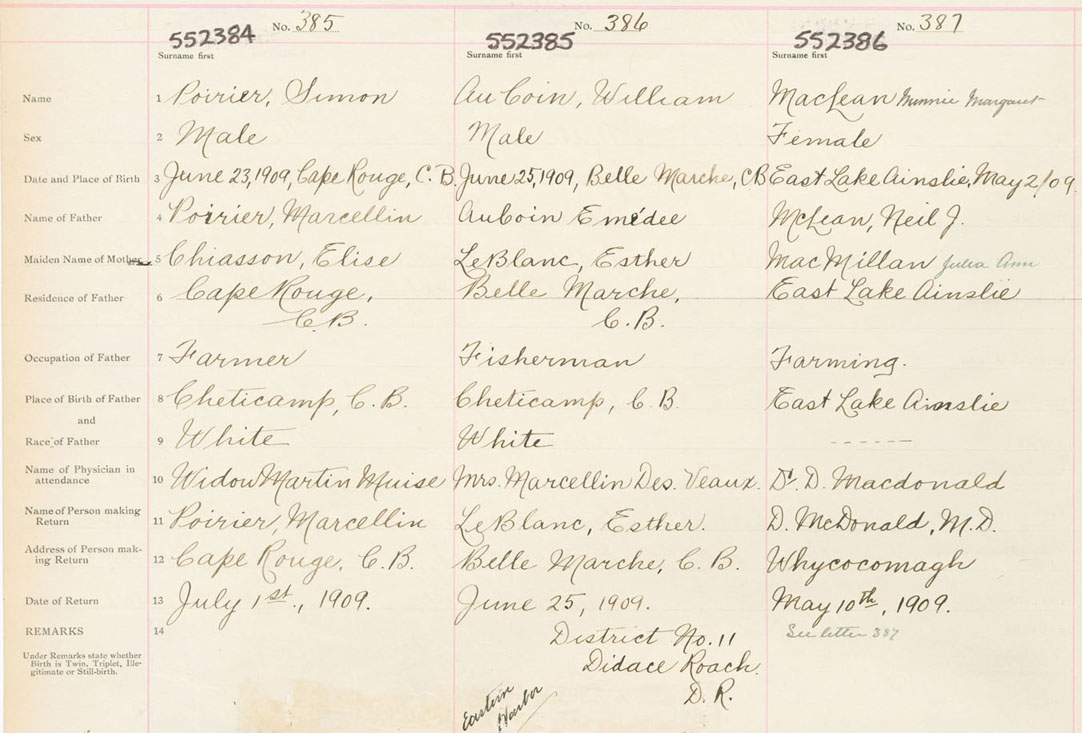 No. 385 No. 386 No. 387
552384 552385 552386
Surname first Surname first Surname first
Name 1 Poirier, Simon AuCoin, William MacLean Minnie Margaret
Sex 2 Male Male Female
Date and Place of Birth 3 June 23, 1909, Cape Rouge, C.B. June 25, 1909, Belle Marche, CB East Lake Ainslie, May 2/09
Name of Father 4 Poirier, Marcellin AuCoin Emédee McLean, Neil J.
Maiden Name of Mother 5 Chiasson, Elise LeBlanc, Esther MacMillan Julia Ann
Residence of Father 6 Cape Rouge, Belle Marche, East Lake Ainslie
C.B. C.B.
Occupation of Father 7 Farmer Fisherman Farming.
Place of Birth of Father 8 Cheticamp, C.B. Cheticamp, C.B. East Lake Ainslie
and
Race of Father 9 White White ------
Name of Physician in
attendance 10 Widow Martin Muise Mrs. Marcellin Des. Veaux. Dr. D. Macdonald
Name of Person making
Return 11 Poirier, Marcellin LeBlanc, Esther. D. McDonald, M.D.
Address of Person mak-
ing Return 12 Cape Rouge, C.B. Belle Marche, C.B. Whycocomagh
Date of Return 13 July 1st., 1909. June 25, 1909. May 10th, 1909.
REMARKS 14 See letter 387
District No. 11
Under Remarks state whether
Birth is Twin, Triplet, Ille-
gitimate or Still-birth.
Didace Roach
D.R.
Eastern
Harbor